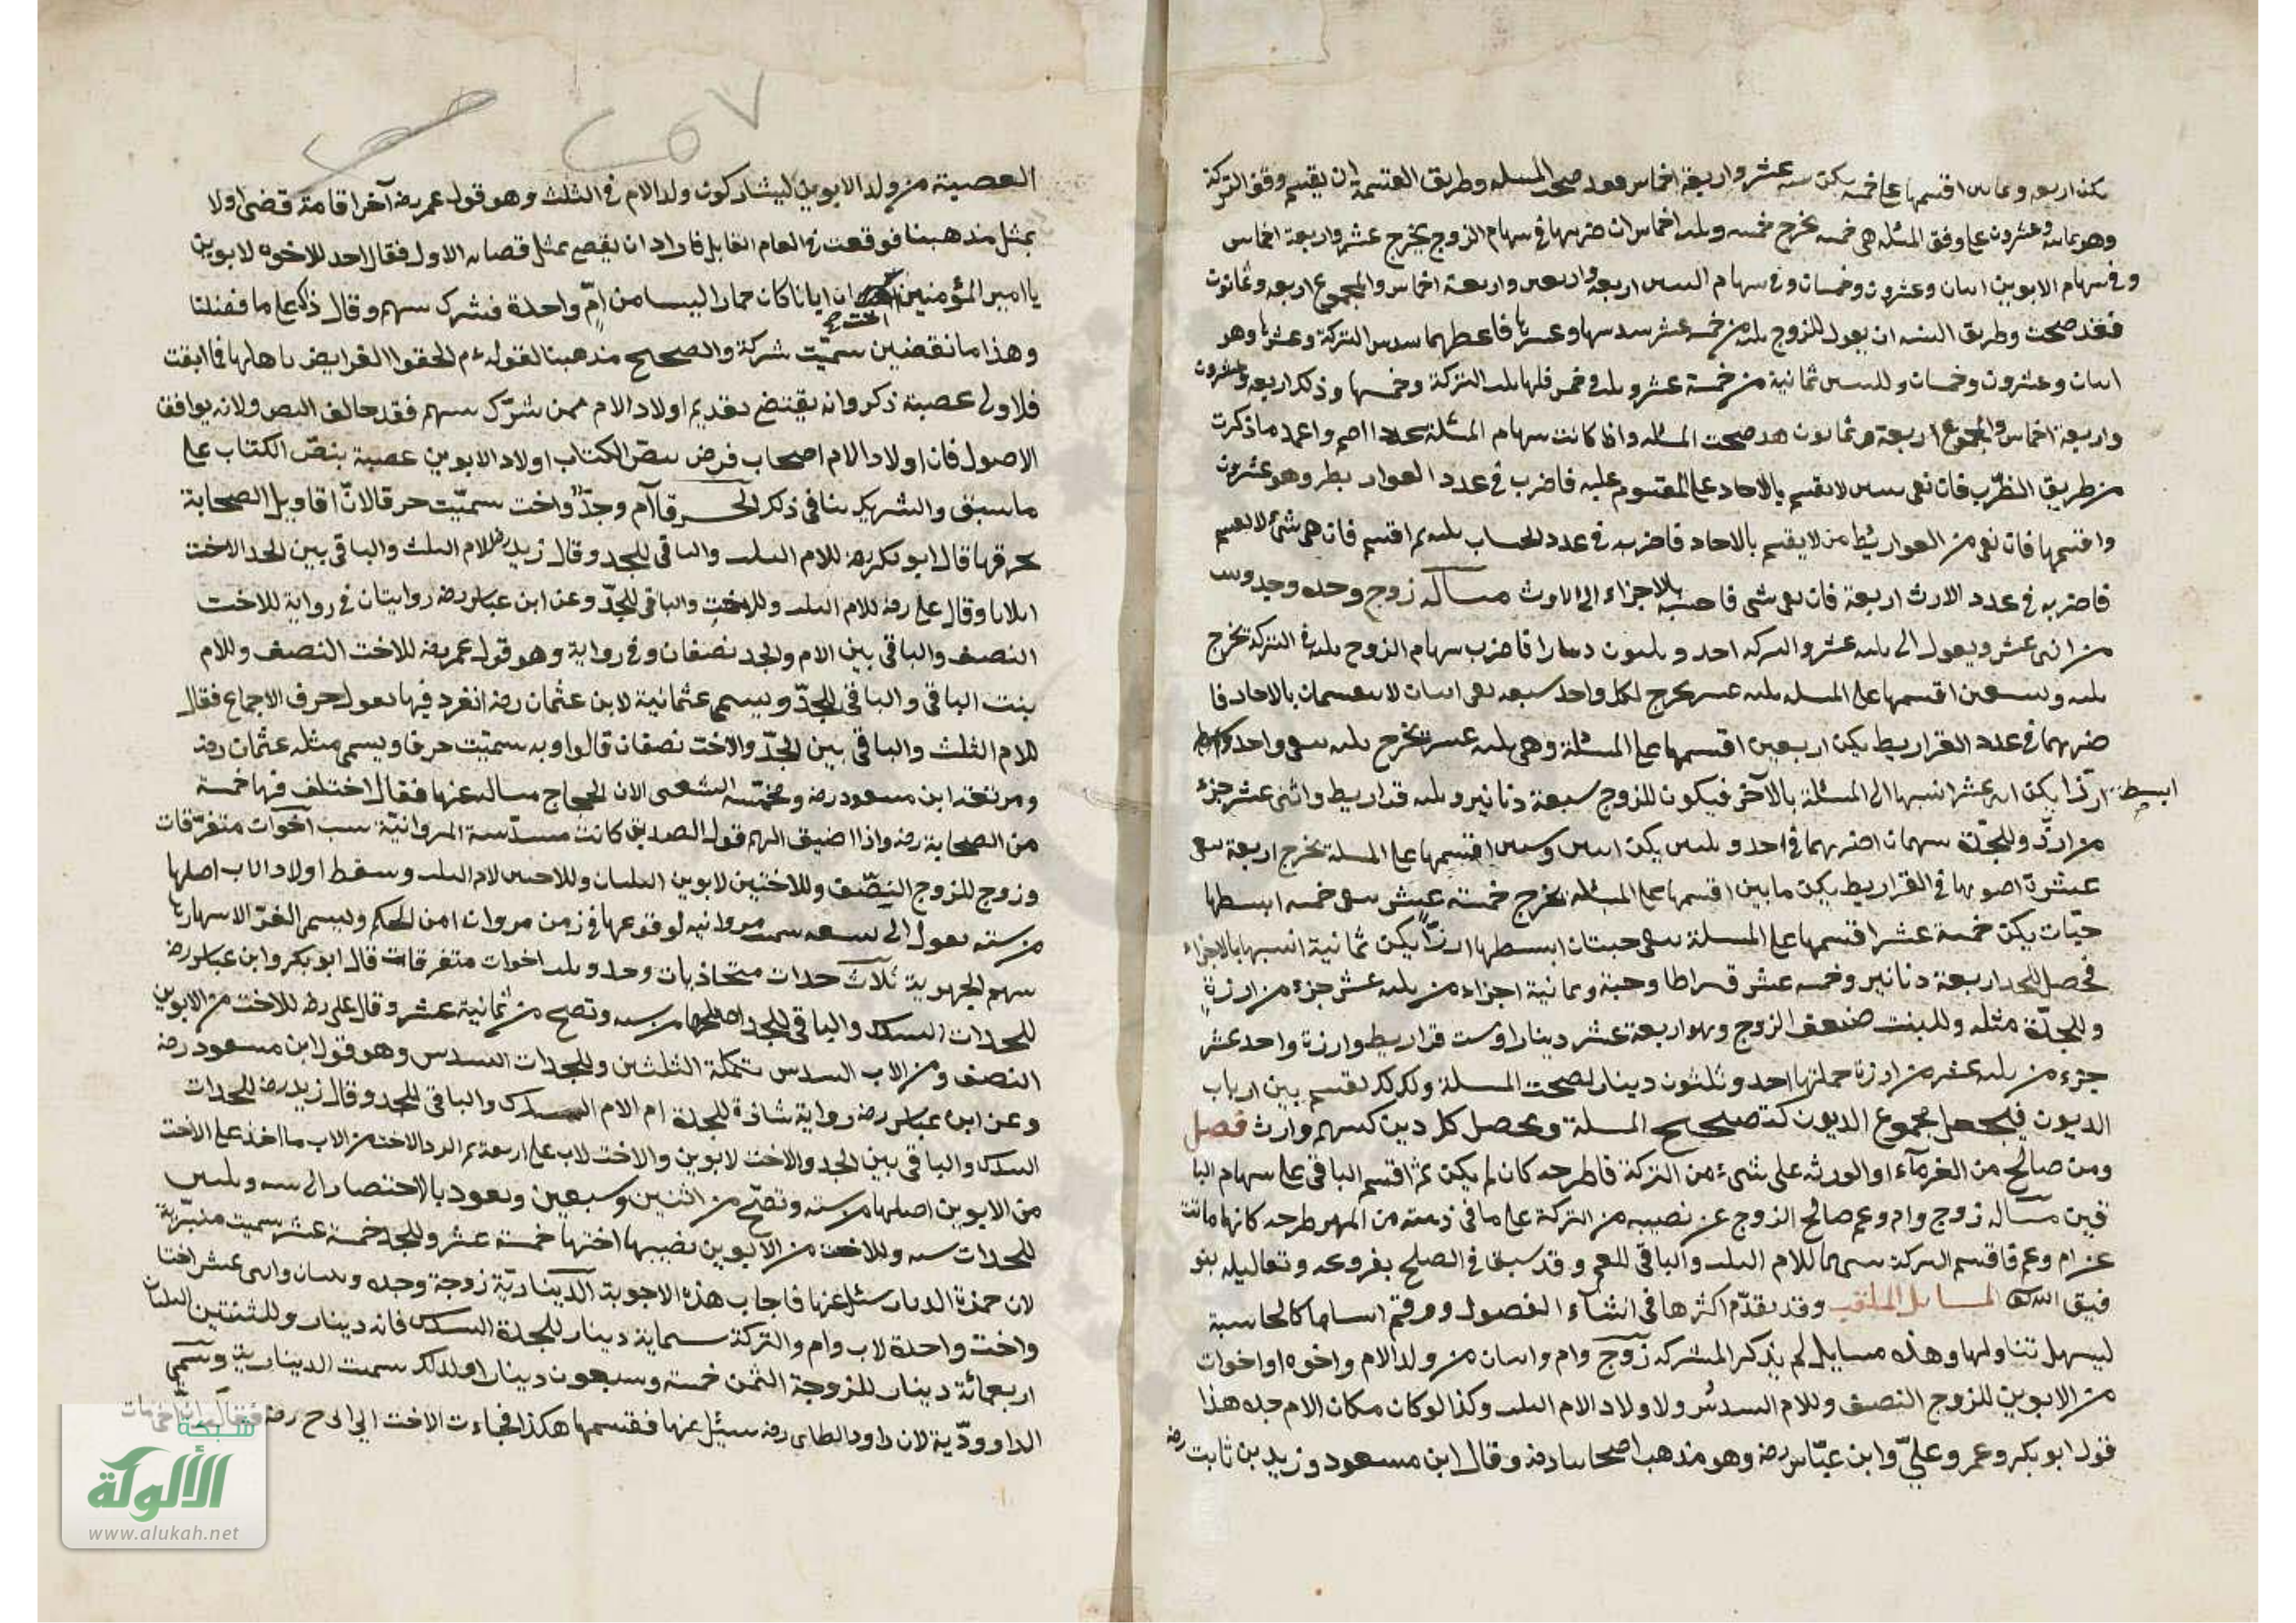 يكن اربعه وثمانين اقسمها على خمسة يكن ستة عشر واربعة اخماس فقد صحت المسئلة وطريق القسمة ان يقسم وفق التركة
وهو ثمانية وعشرون على وفق المسئلة هى خمسة يخرج خمسة وثلثة اخماس ان ضربتها فى سهام الزوج يخرج عشر واربعة اخماس
وفى سهام الابوين اثنان وعشرون وخمسان وفى سهام البنتين اربعة واربعين واربعة اخماس والمجموع اربعة وثمانون
فقد صحت وطريق النسبة ان يقول للزوج ثلثة من خمسة عشر سدسها وعشرها فاعطهما سدس التركة وعشرها وهو
اثنان وعشرون وخمسان وللبنتين ثمانية من خمسة عشر وثلث وخمس فلها ثلث التركة وخمسها وذلك اربعة وعشرون
واربعة اخماس والمجموع اربعة وثمانون فقد صحت المسئلة واذا كانت سهام المسئلة عددا اصم واعمد ما ذكرت
من طريق الضرب فان بقى شىء لا يقسم بالاحاد على المقسوم عليه فاضرب فى عدد القراريط وهو عشرون
واقسمها فان بقى من القراريط من لا يقسم بالاحاد فاضربه فى عدد الحساب ثلثة ثم اقسم فان بقى شئ لا يقسم
فاضربه فى عدد الارز اربعة فان بقى شى فاحسبه بالاجزاء الى الارز مسألة زوج وجد وجدة وبنت
من اثنى عشر ويعول الى ثلثة عشر والتركة احد وثلثون دينارا فاضرب سهام الزوج ثلثة فى التركة تخرج
ثلثة وتسعين اقسمها على المسئلة ثلثة عشر يخرج لكل واحد سبعة بقى اثنان لا يقسمان بالاحاد فا
ضربهما فى عدد القراريط يكن اربعين اقسمها على المسئلة وهى ثلثة عشر يخرج ثلثة بقى واحد
ابسطه ارزا يكن اثنى عشر انسبها الى المسئلة بالآخر فيكون للزوج سبعة دنانير وثلثة قراريط واثنى عشر جزء
من ارز وللجدة سهمان اضربهما فى احد وثلثين يكن اثنين وستين اقسمها على المسئلة يخرج اربعة بقى
عشرة اضربها فى القراريط يكن مايتين اقسمها على المسئلة يخرج خمسة عشر بقى خمسة ابسطها
حبات يكن خمسة عشر اقسمها على المسئلة بقى حبتان ابسطها ارزا يكن ثمانية انسبها بالاجزاء
فحصل للجد اربعة دنانير وخمسة عشر قيراطا وحبة وثمانية اجزاء من ثلثة عشر جزء من ارزة
وللجدة مثله وللبنت ضعف الزوج وهو اربعة عشر دينارا وست قراريط وارزة واحد عشر
جزء من ثلثة عشر من ارزة جملتها احد وثلثون دينار لصحت المسئلة وكذلك تقسم بين ارباب
الديون فيجعل مجموع الديون كتصحيح المسئلة ويحصل كل دين كسهم وارث فصل
ومن صالح من الغرمآء او الورثة على شىء من التركة فاطرحه كان لم يكن ثم اقسم الباقى على سهام البا
قين مسألة زوج وام وعم صالح الزوج عن نصيبه من التركة على ما فى ذمته من المهر طرحه كانها ماتت
عن ام وعم فاقسم التركة بينهما للام الثلث والباقى للعم وقد سبق فى الصلح بفروعه وتعاليله بتو
فيق الله المسايل الملقبة وقد تقدّم اكثرها فى انشآء الفصول ورقم اساميها كالحاسبة
ليسهل تناولها وهذه مسايل لم يذكر المشركة زوج وام واثنان من ولد الام واخوه او اخوات
من الابوين للزوج النصف وللام السدس ولاولاد الام الثلث وكذا لو كان مكان الام جده هذا
قول ابو بكر وعمر وعلىّ وابن عبّاس رضه وهو مذهب اصحابنا رضه وقال ابن مسعود وزيد بن ثابت رضه
العصبة من ولد الابوين ليشاركون ولد الام فى الثلث وهو قول عمر رضه آخرا قامة قضى اولا
بمثل مذهبنا فوقعت فى العام القابل فاراد ان يقضى بمثل قضائه الاول فقال احد للاخوه لابوين
يا امير المؤمنين ان ابانا كان حمارا اليسا من امّ واحدة فشرك بينهم وقال ذلك على ما قضينا
وهذا ما نقضين سميّت شركة والصحيح مذهبنا لقوله ءم الحقوا الفرايض باهلها فما ابقت
فلاولى عصبة ذكر وانه يقتضى تقديم اولاد الام ممن شرّك بينهم فقد خالف النص ولانه يوافق
الاصول فان اولاد الام اصحاب فرض بنصّ الكتاب اولاد الابوين عصبة بنصّ الكتاب على
ما سبق والتشريك ينافى ذلك الخرقا آم وجدّ واخت سميّت خرقا لانّ اقاويل الصحابة
تخرقها قال ابو بكر رضه للام الثلث والباقى للجد وقال زيد رضه للام الثلث والباقى بين الجد الاخت
اثلاثا وقال على رضه للام الثلث وللاخت والباقى للجدّ وعن ابن عباس رضه روايتان فى رواية للاخت
النصف والباقى بين الام والجد نصفان وفى رواية وهو قول عمر رضه للاخت النصف وللام
بنت الباقى والباقى للجدّ ويسمى عثمانية لان عثمان رضه انفرد فيها بقول خرق الاجماع فقال
للام الثلث والباقى بين الجدّ والاخت نصفان قالوا وبه سميّت خرقا ويسمى مثلثه عثمان رضه
ومربعه ابن مسعود رضه ومخمّسة الشعبى لان الحجاج ساله عنها فقال اختلف فيها خمسة
من الصحابة رضه واذا اضيف اليهم قول الصديق كانت مسدّسة المروانيّة ست آخوات متفرّقات
وزوج للزوج النصف وللاختين لابوين الثلثان وللاختين لام الثلث وسقط اولاد الاب اصلها
من سته يعول الى تسعه سميت مروانيه لوقوعها فى زمن مروان ابن الحكم ويسمى الغرّا لاشهارها
بينهم الجهيرية ثلاث جدات متحاذيات وجد وثلث اخوات متفرقات قال ابو بكر وابن عباس رضه
للجدات السدس والباقى للجد اصلها من سته وتصح من ثمانية عشر وقال على رضه للاخت من الابوين
النصف ومن الاب السدس تتكملة الثلثين وللجدات السدس وهو قول ابن مسعود رضه
وعن ابن عباس رضه رواية شاذة للجدة ام الام السدس والباقى للجد وقال زيد رضه للجدات
السدس والباقى بين الجد والاخت لابوين والاخت لاب على اربعة ثم الرد الاخت من الاب ما اخذ على الاخت
من الابوين اصلها من سته وتصحّ من اثنين وسبعين ويعود بالاختصار الى سته وثلثين
للجدات سته وللاخت من الابوين نصيبها اختها خمسة عشر وللجد خمسة عشر سميت
لان حمزة الديات سئل عنها فاجاب هذه الاجوبة الدّيناريّة زوجة وجدة وبنتان واثنى عشر اخا
واخت واحدة لاب وام والتركة ستماية دينار للجدة السدس مائة دينار وللبنتين الثلثان
اربعمائة دينار للزوجة الثمن خمسة وسبعون دينارا ولذلك سميت الدينارية وتسمى
الداووديّة لان داود الطاى رضه سئل عنها فقسمها هكذا فجاءت الاخت الى ابى ح رضه
شبكة
الألوكة
www.alukah.net